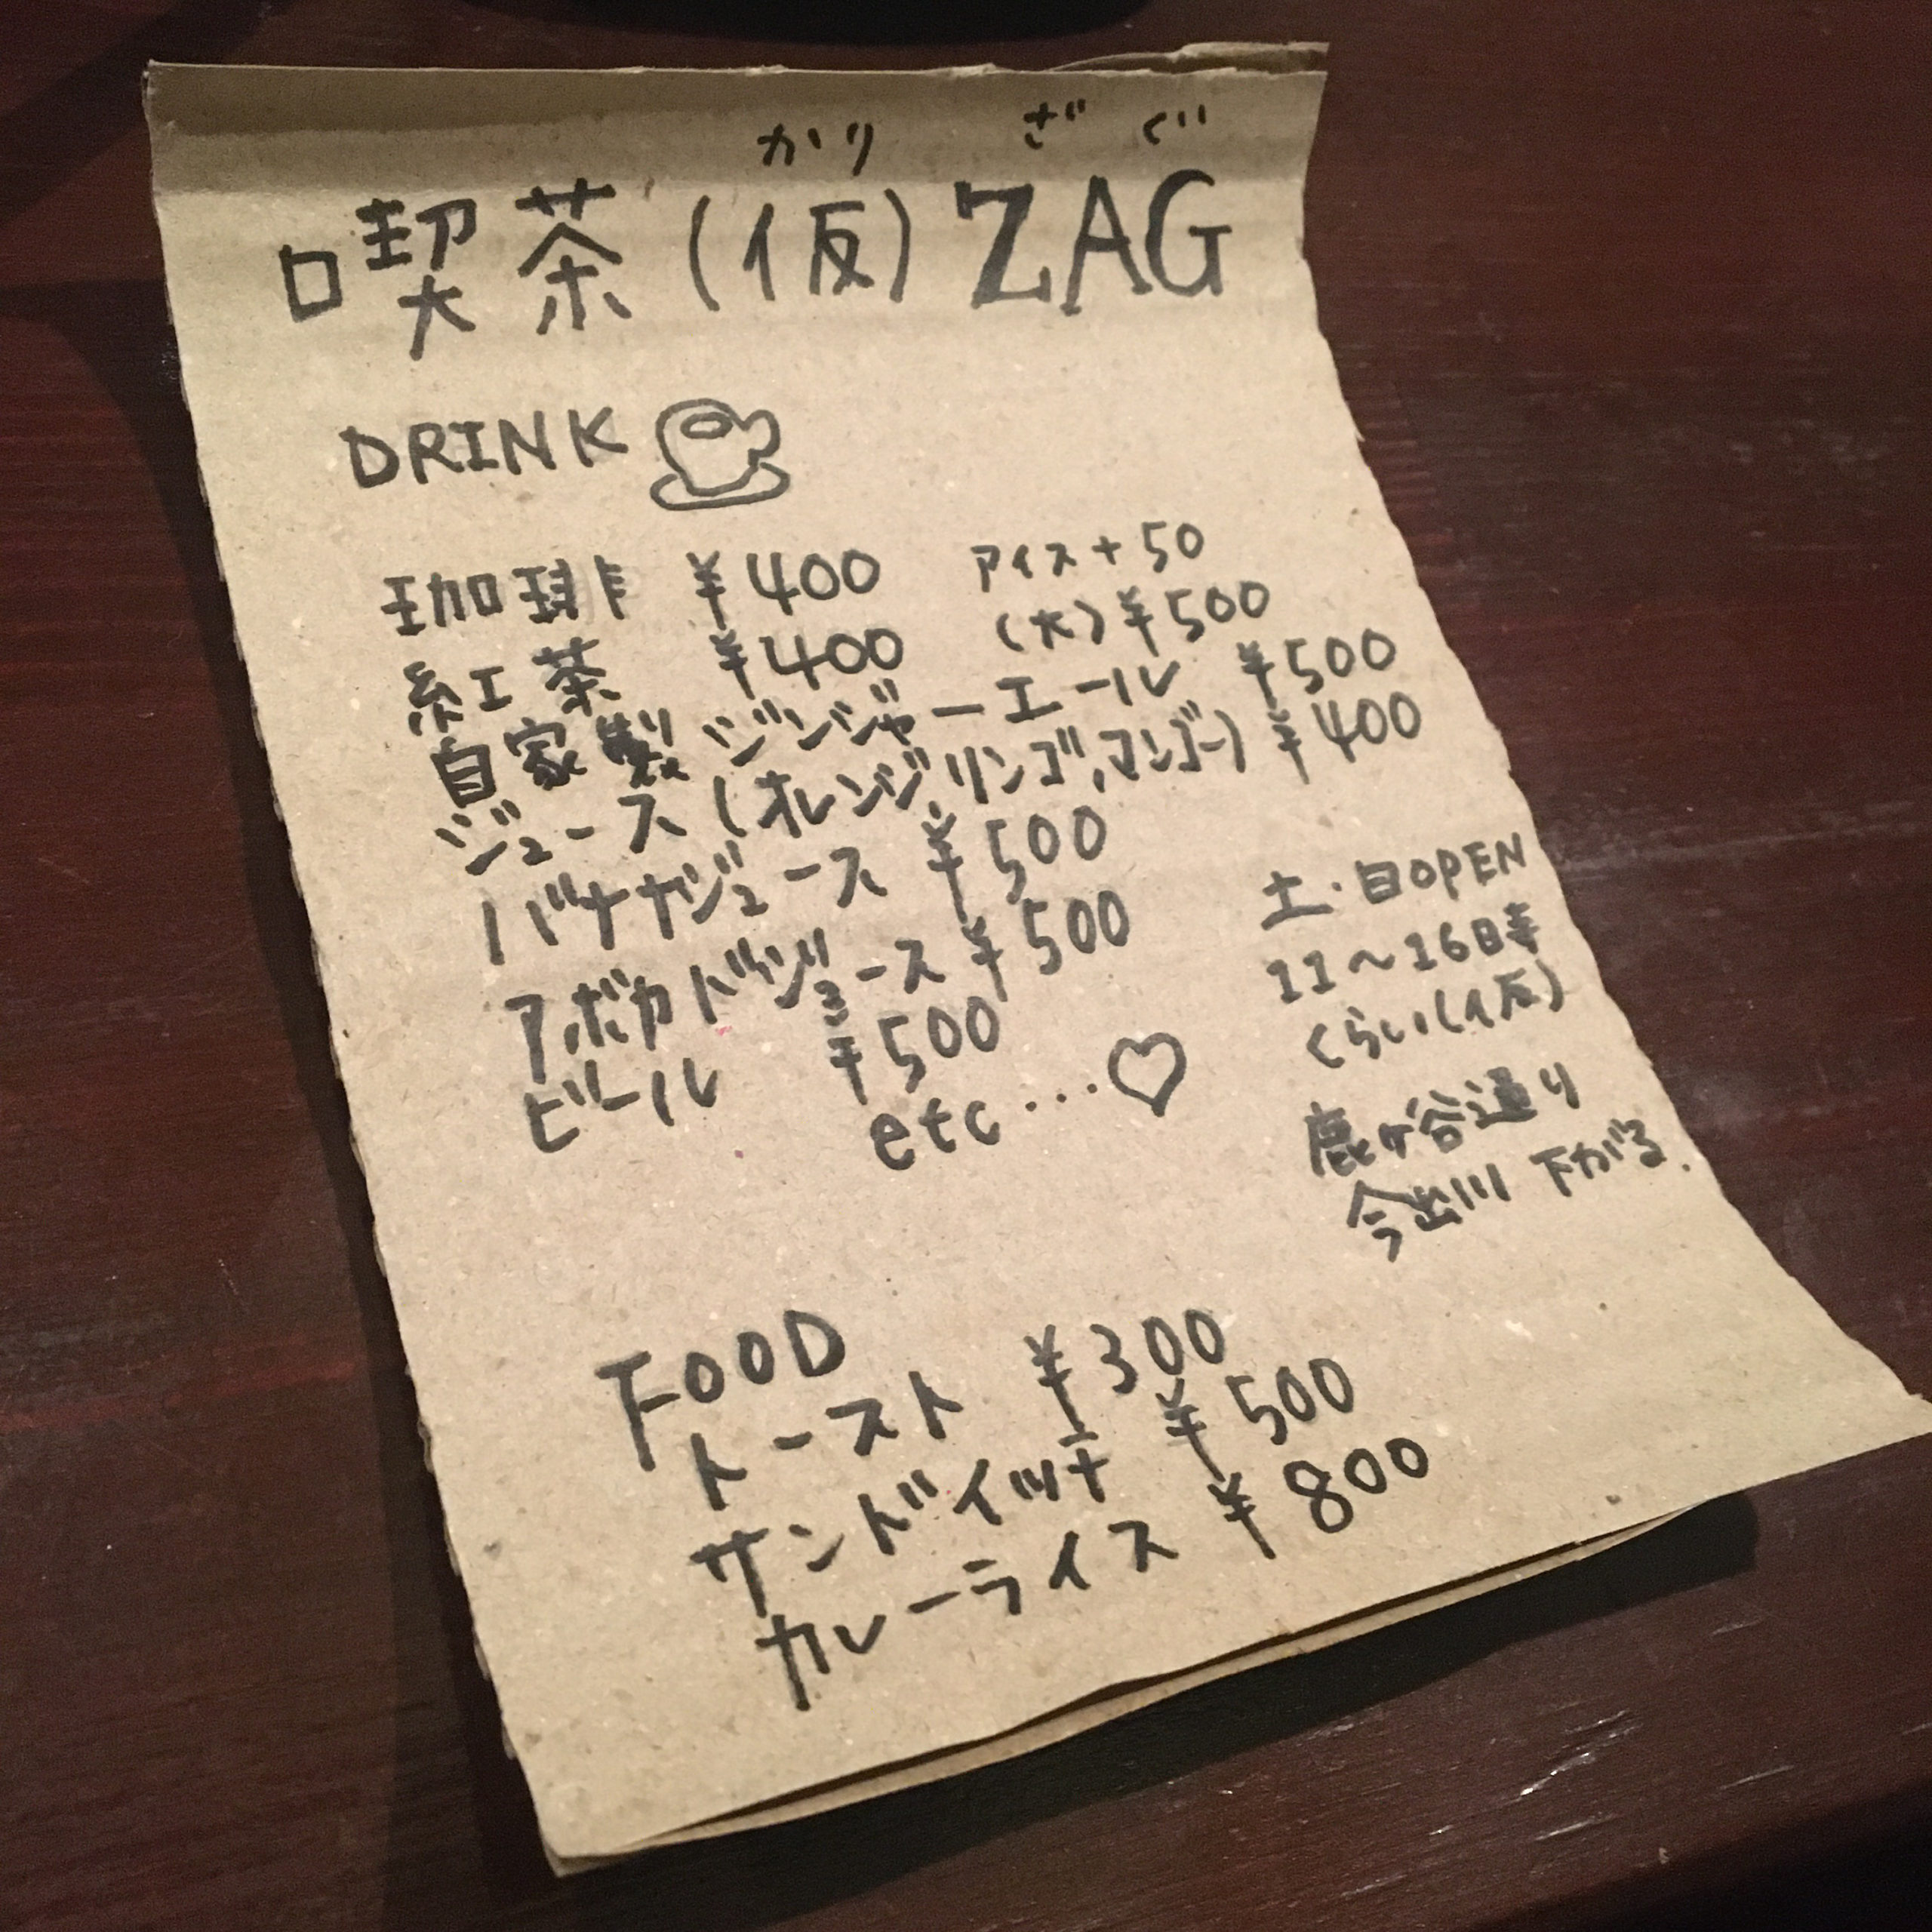 かり ざぐ
喫茶(仮)ZAG
DRINK
珈琲 ¥400 アイス+50
紅茶 ¥400 (大)¥500
自家製ジンジャーエール ¥500
ジュース(オレンジ,リンゴ,マンゴー) ¥400
バナナジュース ¥500
アボカドジュース ¥500
ビール ¥500
etc...♡
土・日OPEN
11〜16時
くらい(仮)
鹿ヶ谷通り
今出川 下がる.
FOOD
トースト ¥300
サンドイッチ ¥500
カレーライス ¥800